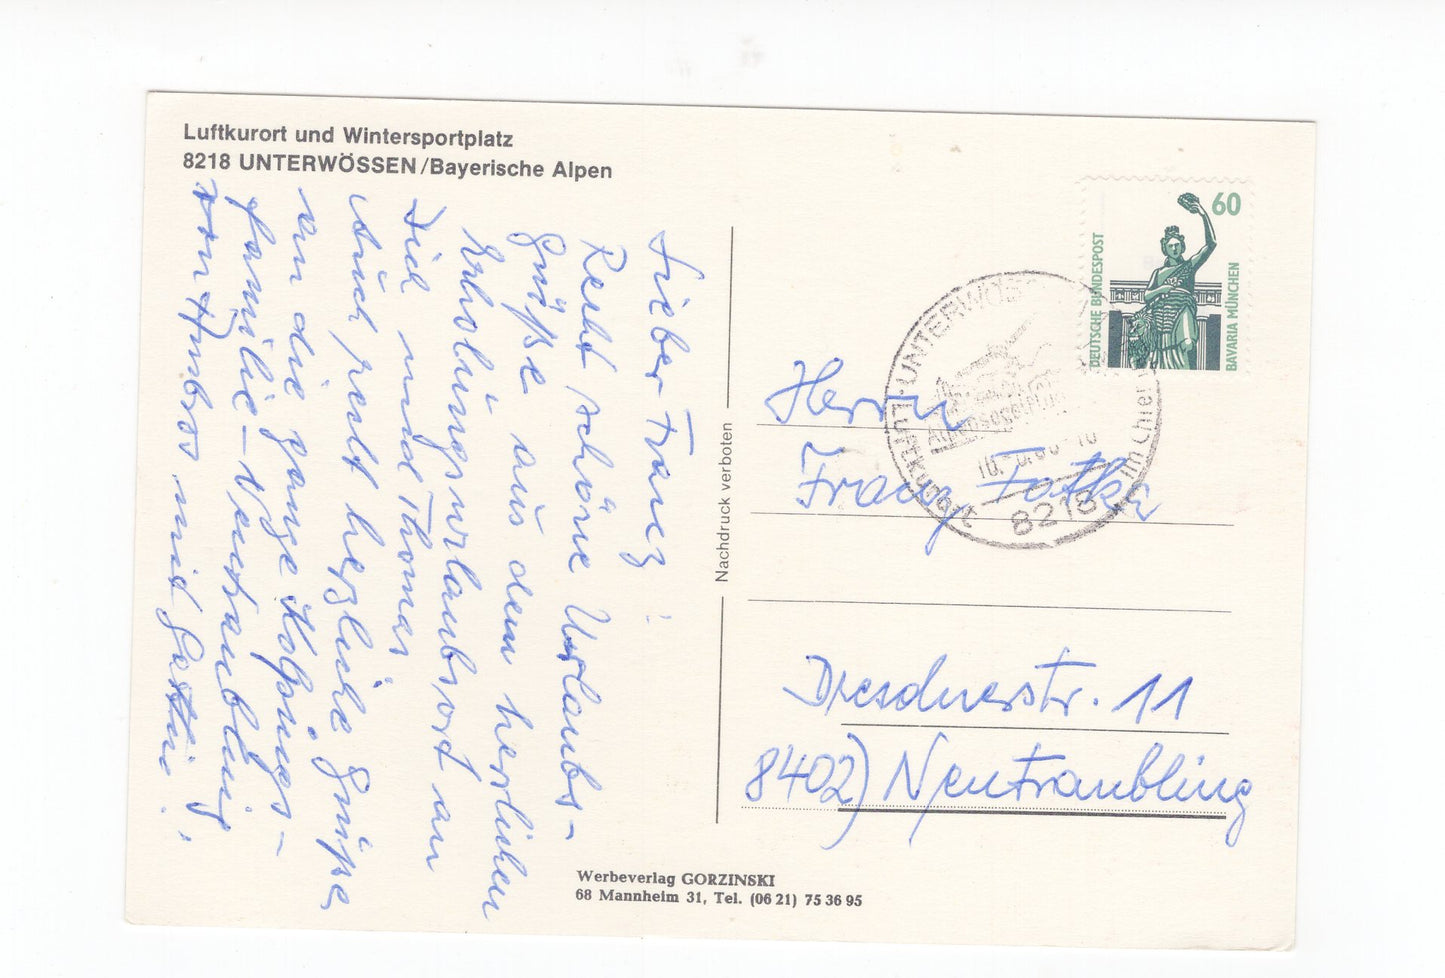 Luftkurort und Wintersportplatz
8218 UNTERWÖSSEN/Bayerische Alpen
Lieber Franz!
Recht schöne Urlaubs-
Grüße aus dem herrlichen
Erholungsurlaubsort an
Dich und Thomas
Auch recht herzliche Grüße
an die ganze Kolpings-
familie - Neutraubling
von Ambros mit Gattin!
Nachdruck verboten
60
DEUTSCHE BUNDESPOST
BAVARIA MÜNCHEN
Luftkurort · UNTERWÖSSEN
8218
Herrn
Franz
Dresdnerstr. 11
8402) Neutraubling
Werbeverlag GORZINSKI
68 Mannheim 31, Tel. (06 21) 75 36 95